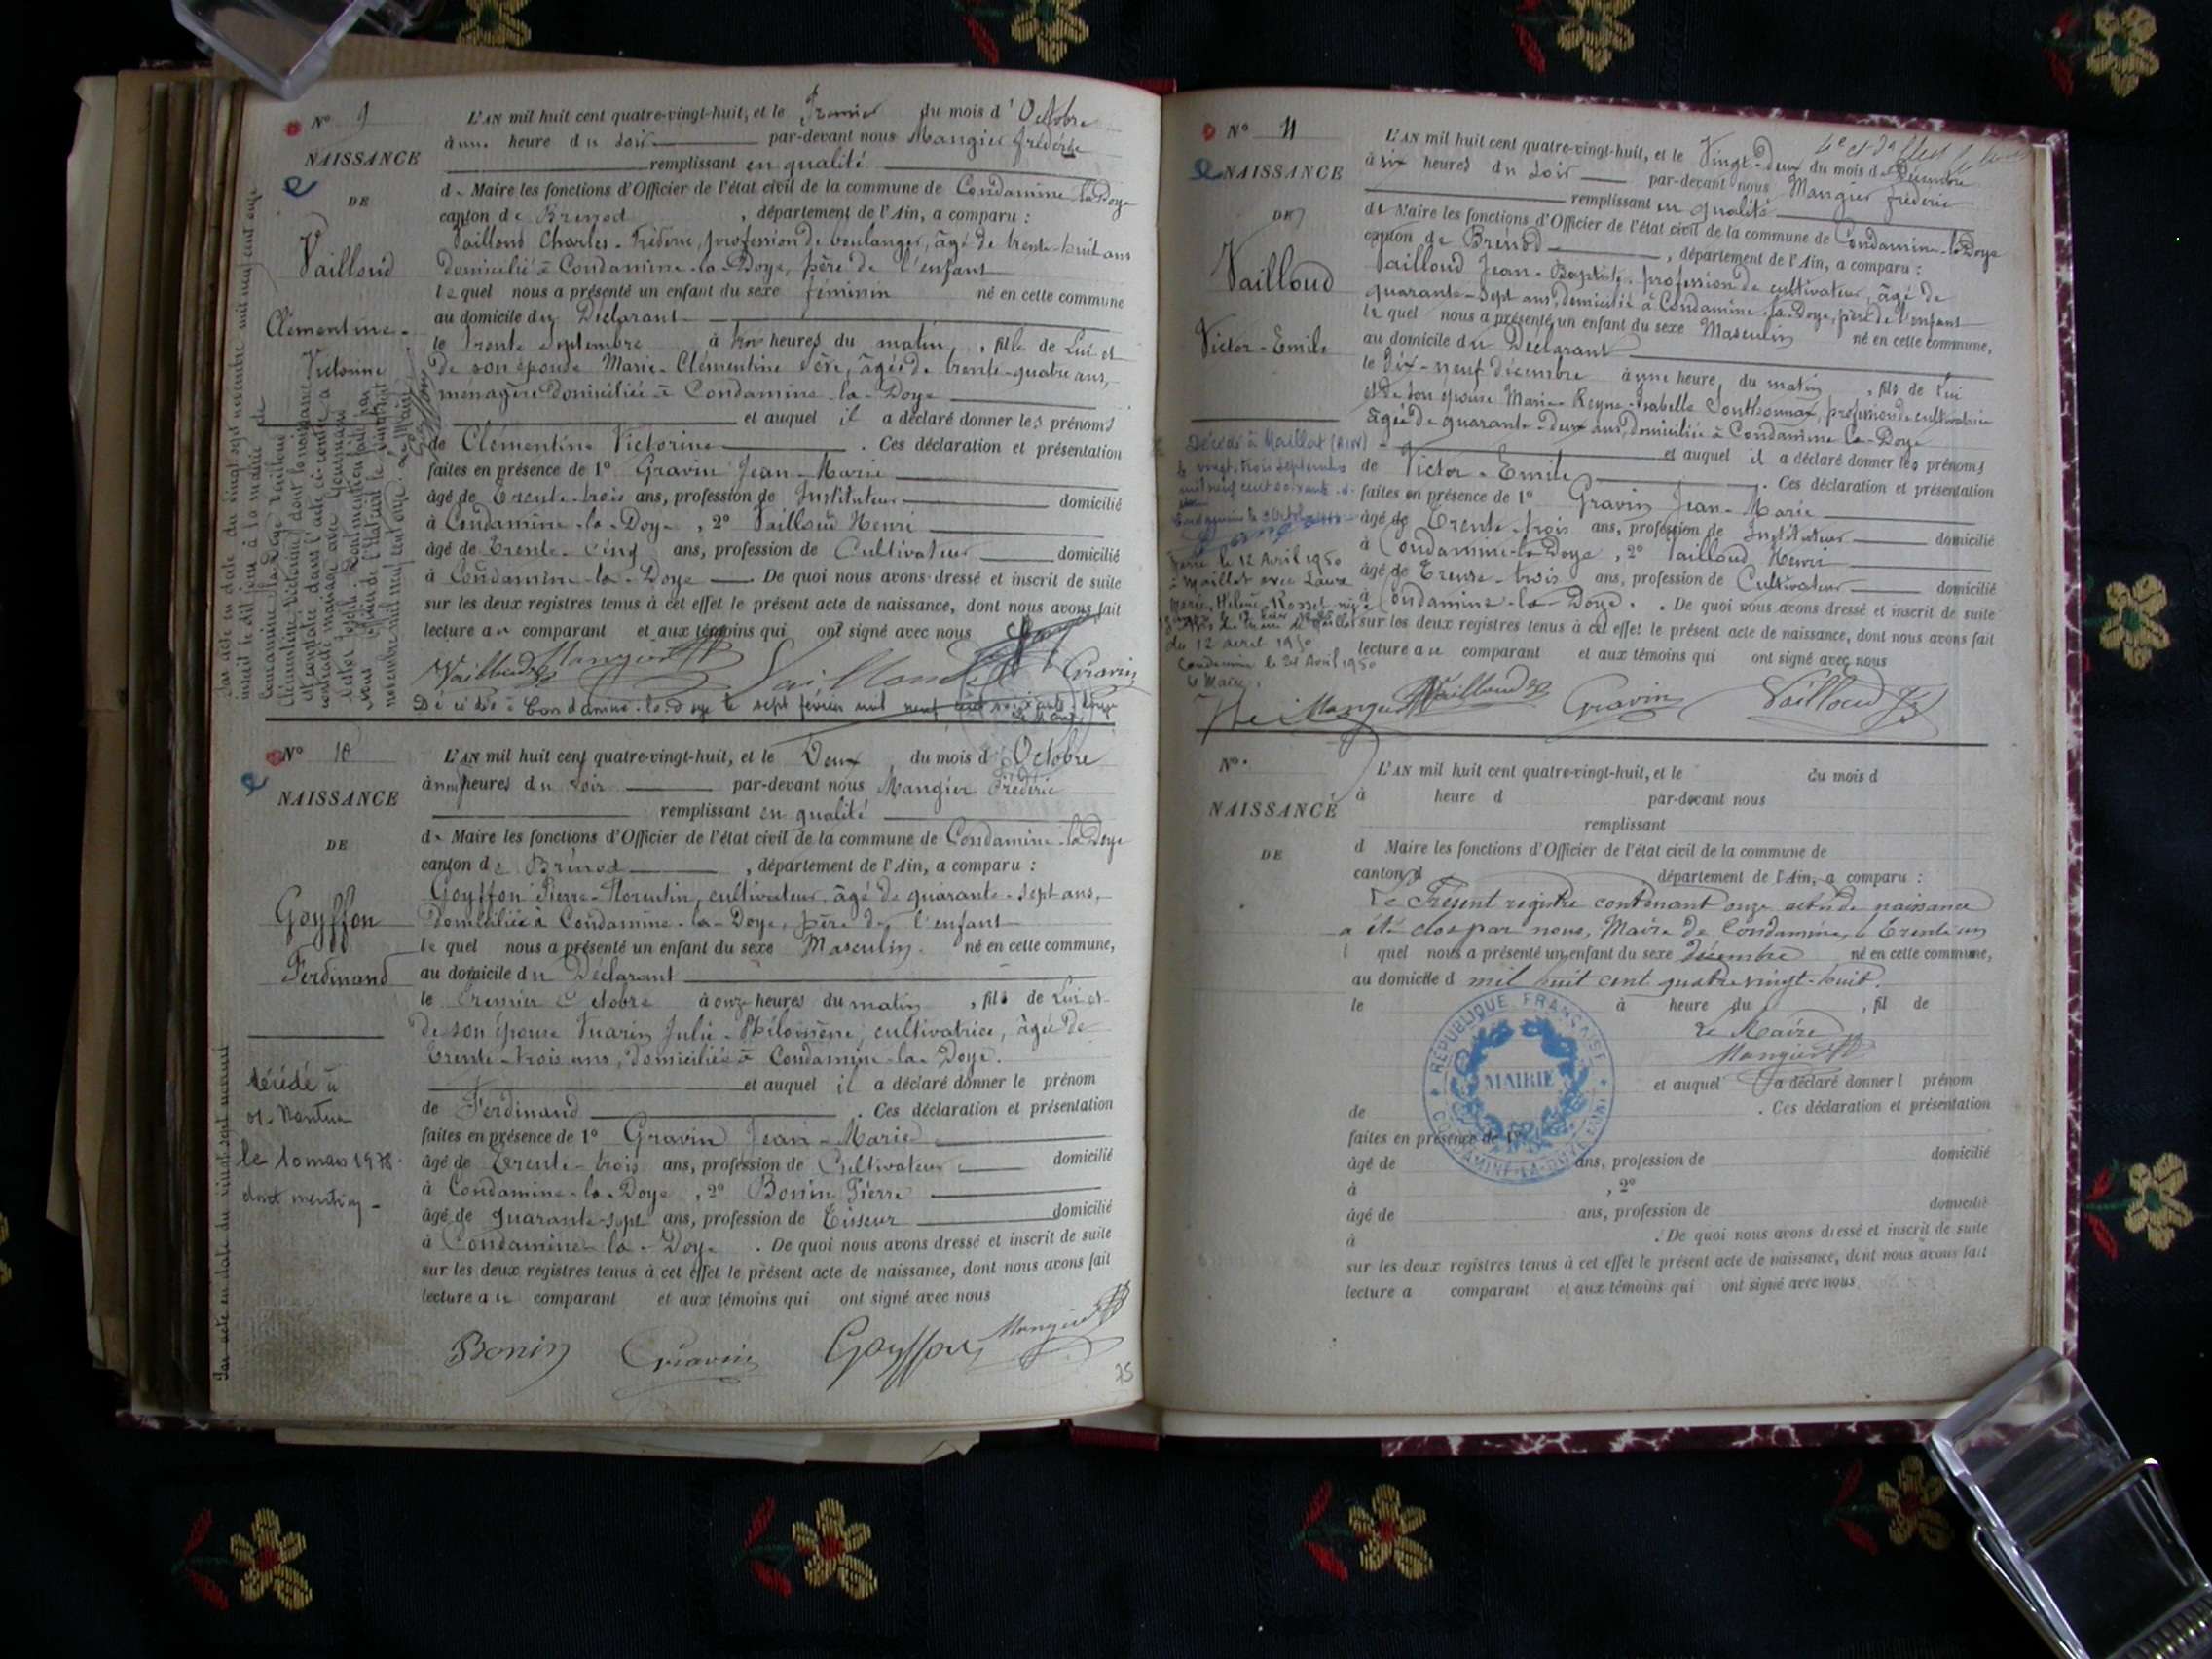 N° 9
NAISSANCE
DE
Vailloud
Clémentine
Victorine
L'AN mil huit cent quatre-vingt-huit, et le Premier du mois d'Octobre
à une heure du soir par-devant nous Mangier frédéric
remplissant en qualité
de Maire les fonctions d'Officier de l'état civil de la commune de Condamine la Doye
canton de Brénod, département de l'Ain, a comparu :
Vailloud Charles-Frédéric, profession de boulanger, âgé de trente-huit ans
domicilié à Condamine-la-Doye, père de l'enfant
lequel nous a présenté un enfant du sexe féminin né en cette commune
au domicile du Déclarant
le trente Septembre à trois heures du matin, fille de Lui et
de son épouse Marie-Clémentine, âgée de trente-quatre ans,
ménagère domiciliée à Condamine-la-Doye
et auquel il a déclaré donner les prénoms
de Clémentine Victorine. Ces déclaration et présentation
faites en présence de 1° Gravin Jean-Marie
âgé de trente-trois ans, profession de Instituteur domicilié
à Condamine-la-Doye, 2° Vailloud Henri
âgé de trente-cinq ans, profession de Cultivateur domicilié
à Condamine-la-Doye. De quoi nous avons dressé et inscrit de suite
sur les deux registres tenus à cet effet le présent acte de naissance, dont nous avons fait
lecture au comparant et aux témoins qui ont signé avec nous
Vailloud Mangier Vailloud Gravin
Décédée à Condamine-la-Doye le sept février mil neuf cent soixante
N° 10
NAISSANCE
DE
Goyffon
Ferdinand
Décédé à
01. Nantua
le 10 mars 1978.
dont mention
L'AN mil huit cent quatre-vingt-huit, et le Deux du mois d'Octobre
à une heures du soir par-devant nous Mangier Frédéric
remplissant en qualité
de Maire les fonctions d'Officier de l'état civil de la commune de Condamine-la Doye
canton de Brénod, département de l'Ain, a comparu :
Goyffon Pierre-Florentin, cultivateur, âgé de quarante-sept ans,
domicilié à Condamine-la-Doye, père de l'enfant
lequel nous a présenté un enfant du sexe Masculin né en cette commune,
au domicile du Déclarant
le Premier Octobre à onze heures du matin, fils de Lui et
de son épouse Vuarin Julie-Philomène, cultivatrice, âgée de
trente-trois ans, domiciliée à Condamine-la-Doye.
et auquel il a déclaré donner le prénom
de Ferdinand. Ces déclaration et présentation
faites en présence de 1° Gravin Jean-Marie
âgé de trente-trois ans, profession de Cultivateur domicilié
à Condamine-la-Doye, 2° Bonin Pierre
âgé de quarante-sept ans, profession de Tisseur domicilié
à Condamine-la-Doye. De quoi nous avons dressé et inscrit de suite
sur les deux registres tenus à cet effet le présent acte de naissance, dont nous avons fait
lecture au comparant et aux témoins qui ont signé avec nous
Bonin Gravin Goyffon Mangier
75
N° 11
NAISSANCE
DE
Vailloud
Victor-Emile
Décédé à Maillat (AIN)
le vingt-trois septembre
mil neuf cent soixante
Marié le 12 Avril 1950
à Maillat avec Laure
Marie, Hélène Rosset
du 12 avril 1950
Condamine le 21 Avril 1950
Le Maire,
L'AN mil huit cent quatre-vingt-huit, et le Vingt-deux du mois de Décembre
à six heures du soir par-devant nous Mangier frédéric
remplissant en qualité
de Maire les fonctions d'Officier de l'état civil de la commune de Condamine-la Doye
canton de Brénod, département de l'Ain, a comparu :
Vailloud Jean-Baptiste, profession de cultivateur, âgé de
quarante-sept ans, domicilié à Condamine-la-Doye, père de l'enfant
lequel nous a présenté un enfant du sexe Masculin né en cette commune,
au domicile du Déclarant
le Dix-neuf décembre à une heure du matin, fils de Lui
et de son épouse Marie-Reyne-Isabelle Southonnax, profession de cultivatrice
âgée de quarante-deux ans, domiciliée à Condamine-la-Doye
et auquel il a déclaré donner les prénoms
de Victor-Emile. Ces déclaration et présentation
faites en présence de 1° Gravin Jean-Marie
âgé de trente-trois ans, profession de Instituteur domicilié
à Condamine-la-Doye, 2° Vailloud Henri
âgé de trente-trois ans, profession de Cultivateur domicilié
à Condamine-la-Doye. De quoi nous avons dressé et inscrit de suite
sur les deux registres tenus à cet effet le présent acte de naissance, dont nous avons fait
lecture au comparant et aux témoins qui ont signé avec nous
Mangier Vailloud Gravin Vailloud
N°
NAISSANCE
DE
L'AN mil huit cent quatre-vingt-huit, et le du mois d
à heure d par-devant nous
remplissant
d Maire les fonctions d'Officier de l'état civil de la commune de
canton d département de l'Ain, a comparu :
Le Présent registre contenant onze actes de naissance
a été clos par nous, Maire de Condamine, le trente un
l quel nous a présenté un enfant du sexe décembre né en cette commune,
au domicile d mil huit cent quatre vingt-huit.
le à heure du, fil de
Le Maire
Mangier
RÉPUBLIQUE FRANÇAISE
MAIRIE
CONDAMINE-LA-DOYE (AIN)
et auquel a déclaré donner l prénom
de. Ces déclaration et présentation
faites en présence de 1°
âgé de ans, profession de domicilié
à, 2°
âgé de ans, profession de domicilié
à. De quoi nous avons dressé et inscrit de suite
sur les deux registres tenus à cet effet le présent acte de naissance, dont nous avons fait
lecture a comparant et aux témoins qui ont signé avec nous